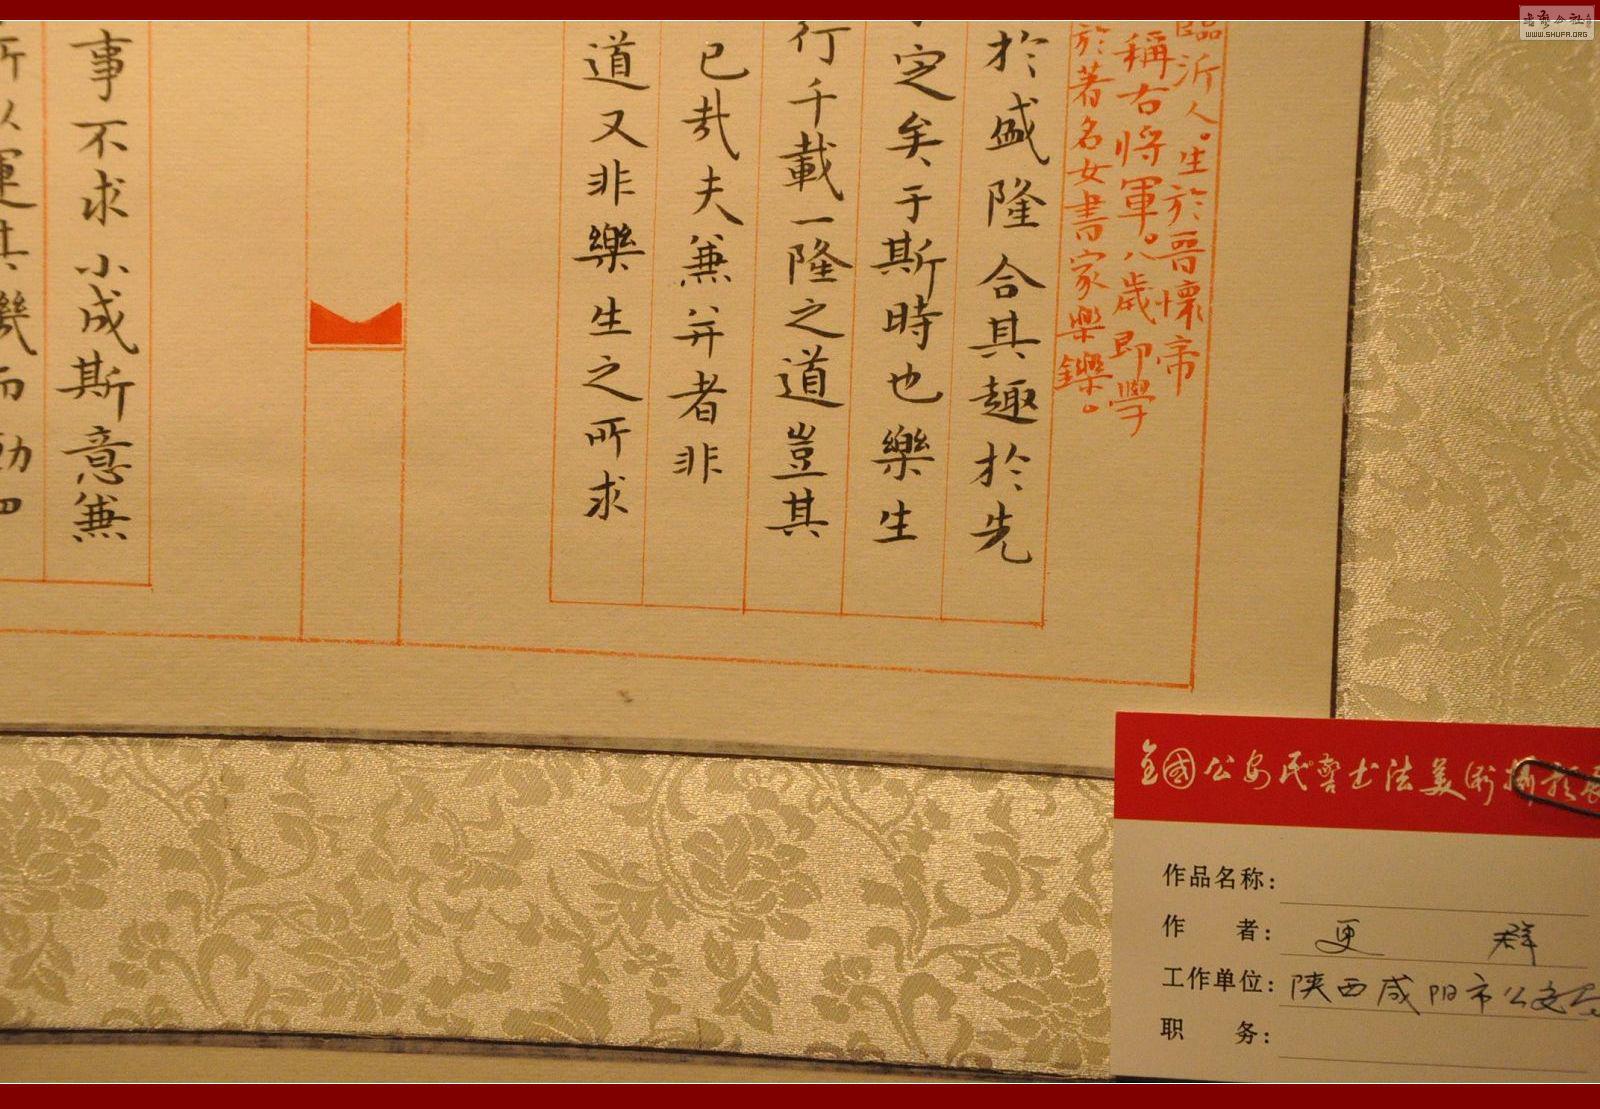 臨沂人。生於晉懷帝
稱右將軍。八歲即學
於著名女書家樂鑠。
於盛隆合其趣於先
定矣于斯時也樂生
行千載一隆之道豈其
已哉夫兼并者非
道又非樂生之所求
事不求小成斯意兼
所以運其機而動四
全國公安民警书法美術摄影展
作品名称:
作 者: 更 群
工作单位: 陕西咸阳市公安局
职 务:
WWW.SHUFA.ORG